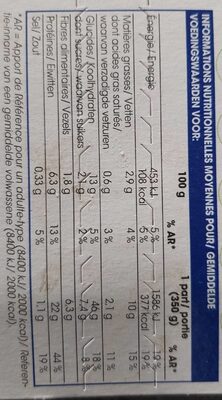 INFORMATIONS NUTRITIONNELLES MOYENNES POUR/ GEMIDDELDE
VOEDINGSWAARDEN VOOR:
100 g % AR* 1 part/ portie % AR*
(350 g)
Énergie/ Energie 453 kJ 5% 1586 kJ 19%
108 kcal 5% 377 kcal 19%
Matières grasses/ Vetten 2.9 g 4% 10 g 15%
dont acides gras saturés/
waarvan verzadigde vetzuren 0.6 g 3% 2.1 g 11%
Glucides/ Koolhydraten 13 g 5% 46 g 18%
dont sucres/ waarvan suikers 2.1 g 2% 7.4 g 8%
Fibres alimentaires/ Vezels 1.8 g 6.3 g
Protéines/ Eiwitten 6.3 g 13% 22 g 44%
Sel/ Zout 0.33 g 5% 1.1 g 19%
*AR = Apport de Référence pour un adulte-type (8400 kJ/ 2000 kcal)/ Referen-
tie-inname van een gemiddelde volwassene (8400 kJ/ 2000 kcal).